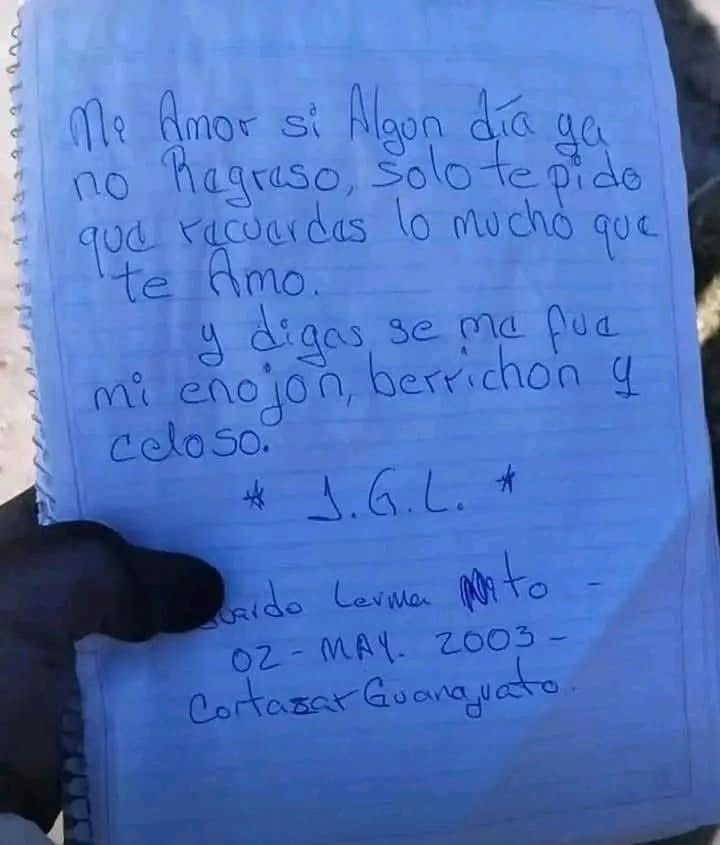 Me Amor si Algon día ya
no Ragraso, solo te pido
qua racuardas lo mucho que
te Amo.
y digas se ma fua
mi enojon, berrichon y
celoso.
* J.G.L. *
Lerma
02 - MAY. 2003 -
Cortazar Guanajuato.